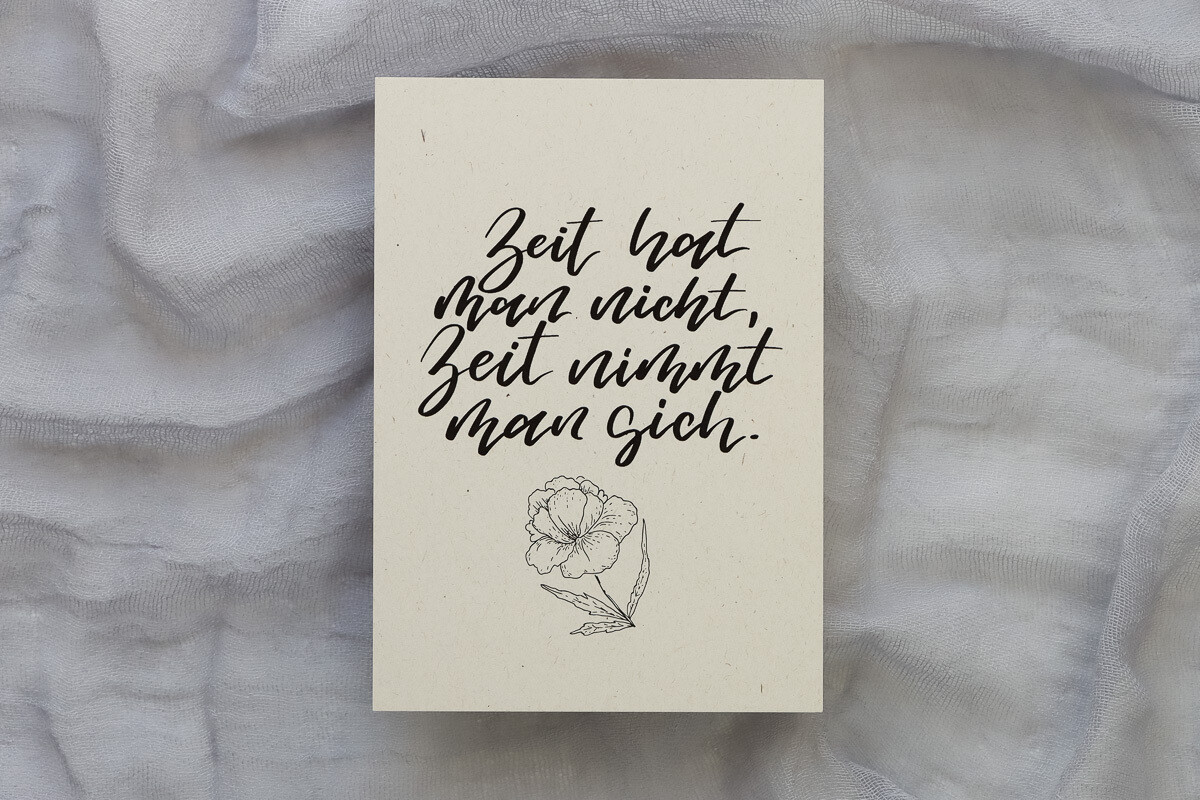 Zeit hat
man nicht,
Zeit nimmt
man sich.